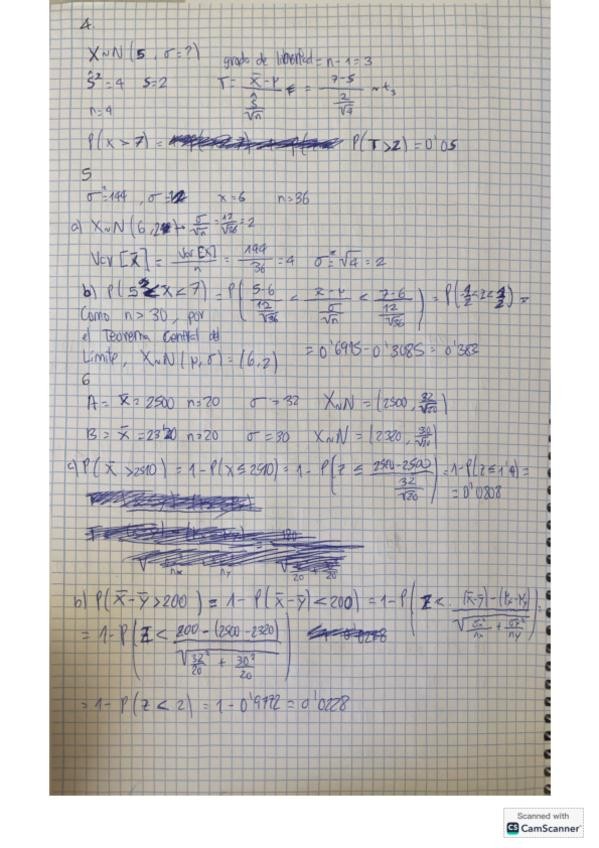 4.
X~N(5, σ=?) grado de libertad = n-1=3
ŝ²=4 s=2 T= (x̄-μ)/(ŝ/√n) = (7-5)/(2/√4) ~ t₃
n=4
P(x>7) = P(T>2)=0'05
5
σ²=144, σ=12 x=6 n=36
a) X~N(6,2) σ/√n = 12/√36 = 2
Var[X̄] = Var[X]/n = 144/36 = 4 σ=√4=2
b) P(5<X<7) = P((5-6)/(12/√36) < (x-μ)/(σ/√n) < (7-6)/(12/√36)) = P(-1/2<z<1/2) =
Como n>30, por
el Teorema Central del
Límite, X~N(μ,σ)=(6,2) = 0'6915-0'3085=0'383
6
A= x̄=2500 n=20 σ=32 X~N=(2500, 32/√20)
B= x̄=2320 n=20 σ=30 X~N=(2320, 30/√20)
P(x̄>2510) = 1-P(x≤2510) = 1-P(z≤ (2510-2500)/(32/√20)) = 1-P(z≤1'4) =
= 0'0808
b) P(x̄-ȳ>200) = 1-P(x̄-ȳ<200) = 1-P(Z< ((x̄-ȳ)-(μx-μy))/√(σx²/nx + σy²/ny)) =
= 1-P(Z< (200-(2500-2320))/√(32²/20 + 30²/20))
= 1-P(z<2) = 1-0'9772 = 0'0228
Scanned with
CS CamScanner